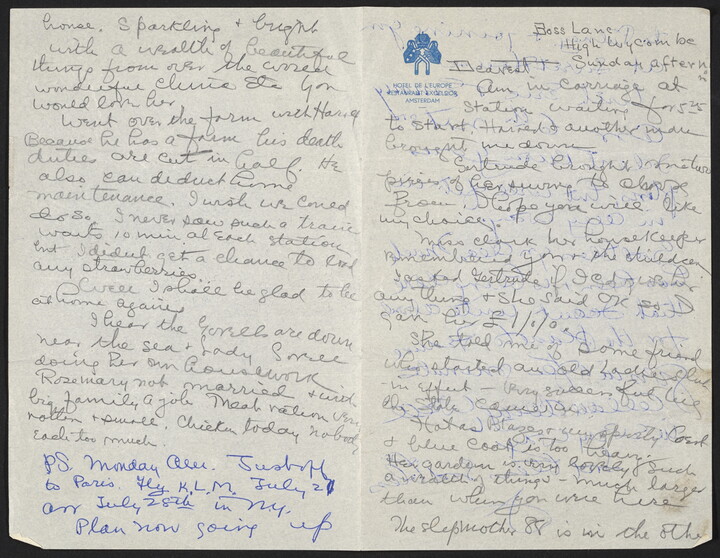 Boss Lane
High Wycombe
HOTEL DE L'EUROPE
RESTAURANT EXCELSIOR
AMSTERDAM
Dearest Sunday aftern
Am in carriage at
station waiting for 5 25
to start. Harired & another man
brought me down.
Gertrude brought
pieces of her to
from. I hope you will like
my choice.
Miss Clark her housekeeper
remembered you & the children
I asked Gertrude if I cd give her
anything & she said OK so I
gave her £1/0/0.
She told me of some friend
who started an old ladies club
in effect – very successful till
the State came in.
Hot as blazes & my sporty coat
& blue coat is too heavy.
Her garden is very lovely such
a wealth of things – much larger
than when you were here
The stepmother 88 is in the othe
house. Sparkling & bright
with a wealth of beautiful
things from over the world
wonderful china etc you
would love her.
Went over the farm with
Because he has a farm his death
duties are cut in half. He
also can deduct home
maintenance. I wish we could
do so. I never saw such a train
waits 10 min at each station
but I didn't get a chance to
any strawberries.
Well I shall be glad to be
at home again.
I hear the Gorells are down
near the sea & Lady Gorell
doing her own housework
Rosemary not married & with
big family a job. Meat ration very
rotten & small. Chicken today nobody
eat too much.
PS. Monday Am. Just off
to Paris. Fly K.L.M. July 27
arr July 28th in NY.
Plan now going up